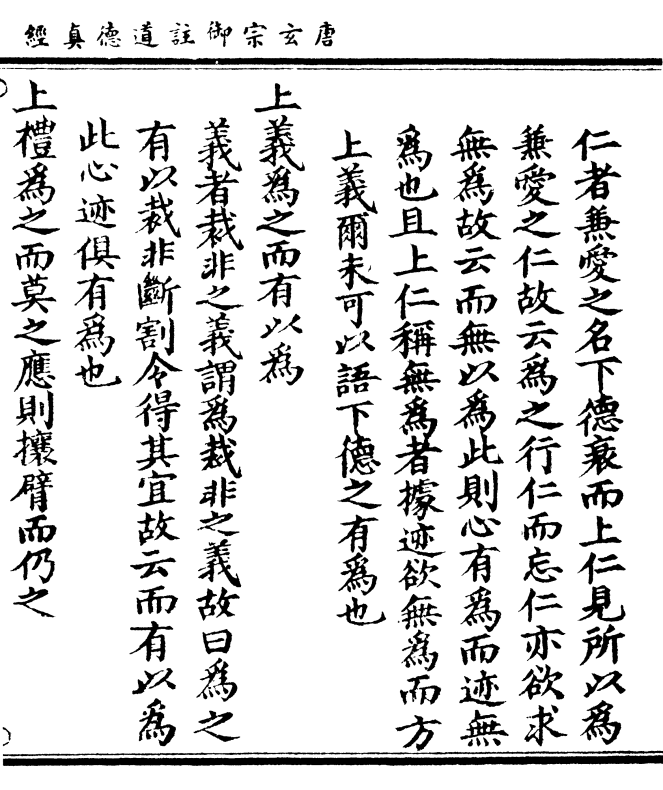 唐玄宗御註道德真經
仁者兼愛之名下德衰而上仁見所以為
兼愛之仁故云為之行仁而忘仁亦欲求
無為故云而無以為此則心有為而迹無
為也且上仁稱無為者據迹欲無為而方
上義爾未可以語下德之有為也
上義為之而有以為
義者裁非之義謂為裁非之義故曰為之
有以裁非斷割令得其宜故云而有以為
此心迹俱有為也
上禮為之而莫之應則攘臂而仍之